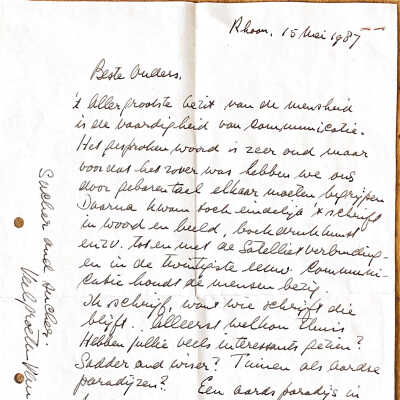 Rhoon, 15 Mei 1987
Beste Ouders.
't Allergrootste bezit van de mensheid
is de vaardigheid van communicatie.
Het gesproken woord is zeer oud maar
voordat het zover was hebben we ons
door gebarentaal elkaar moeten begrijpen
Daarna kwam toch eindelijk 't schrift
in woord en beeld, boekdrukkunst
enzv. tot en met de Satelliet verbinding-
en in de twintigste eeuw. Communi-
catie houdt de mensen bezig.
Ik schrijf, want wie schrijft die
blijft. Allereerst welkom thuis
Hebben jullie veel interessants gezien?
Sadder and wiser? Tuinen als aardse
paradijzen? Een aards paradijs in
Sadder and
Veel groeten van